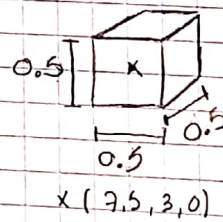 0.5
x
0.5
0.5
x (7,5, 3, 0)